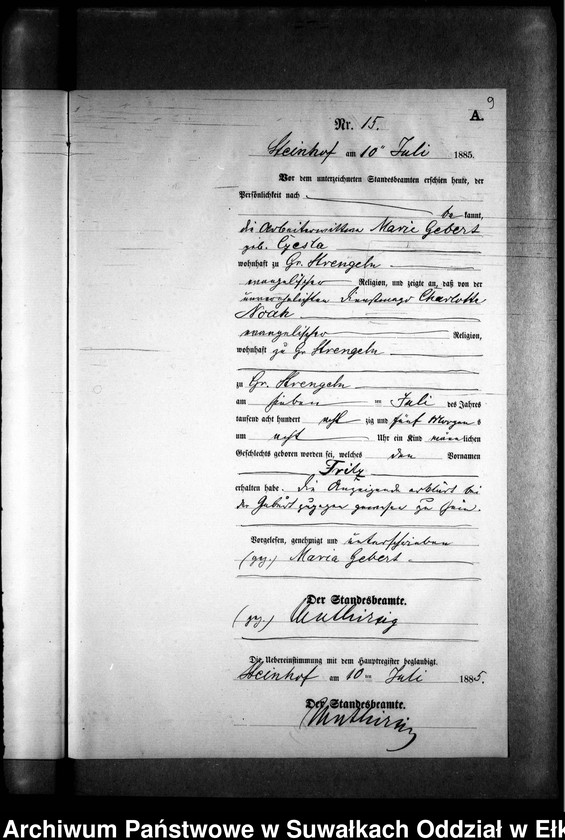 9
A.
Nr. 15.
Steinhof am 10ⁿ Juli 1885.
Vor dem unterzeichneten Standesbeamten erschien heute, der
Persönlichkeit nach
be kannt,
die Arbeiterwittwe Marie Gebert
geb. Czesla
wohnhaft zu Gr. Strengeln
evangelischer Religion, und zeigte an, daß von der
unverehelichten Dienstmagd Charlotte
Noah
evangelischer Religion,
wohnhaft zu Gr. Strengeln
zu Gr. Strengeln
am sieben ten Juli des Jahres
tausend acht hundert acht zig und fünf Morgen s
um acht Uhr ein Kind männlichen
Geschlechts geboren worden sei, welches den Vornamen
Fritz
erhalten habe. Die Anzeigende erklärt bei
der Geburt zugegen gewesen zu sein.
Vorgelesen, genehmigt und unterschrieben
(gez.) Maria Gebert
Der Standesbeamte.
(gez.)
Die Uebereinstimmung mit dem Hauptregister beglaubigt.
Steinhof am 10ten Juli 1885.
Der Standesbeamte.
Archiwum Państwowe w Suwałkach Oddział w Ełk